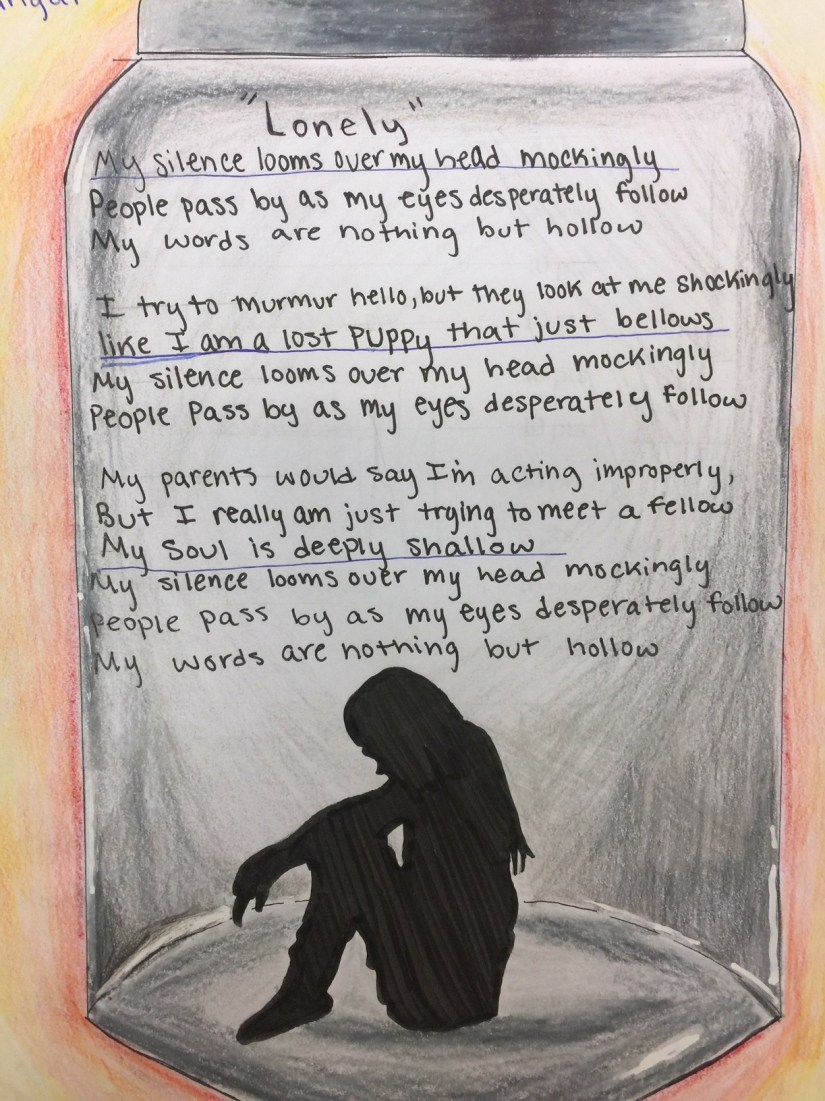 "Lonely"
My silence looms over my head mockingly
People pass by as my eyes desperately follow
My words are nothing but hollow
I try to murmur hello, but they look at me shockingly
like I am a lost puppy that just bellows
My silence looms over my head mockingly
People pass by as my eyes desperately follow
My parents would say I'm acting improperly,
But I really am just trying to meet a fellow
My soul is deeply shallow
My silence looms over my head mockingly
People pass by as my eyes desperately follow
My words are nothing but hollow